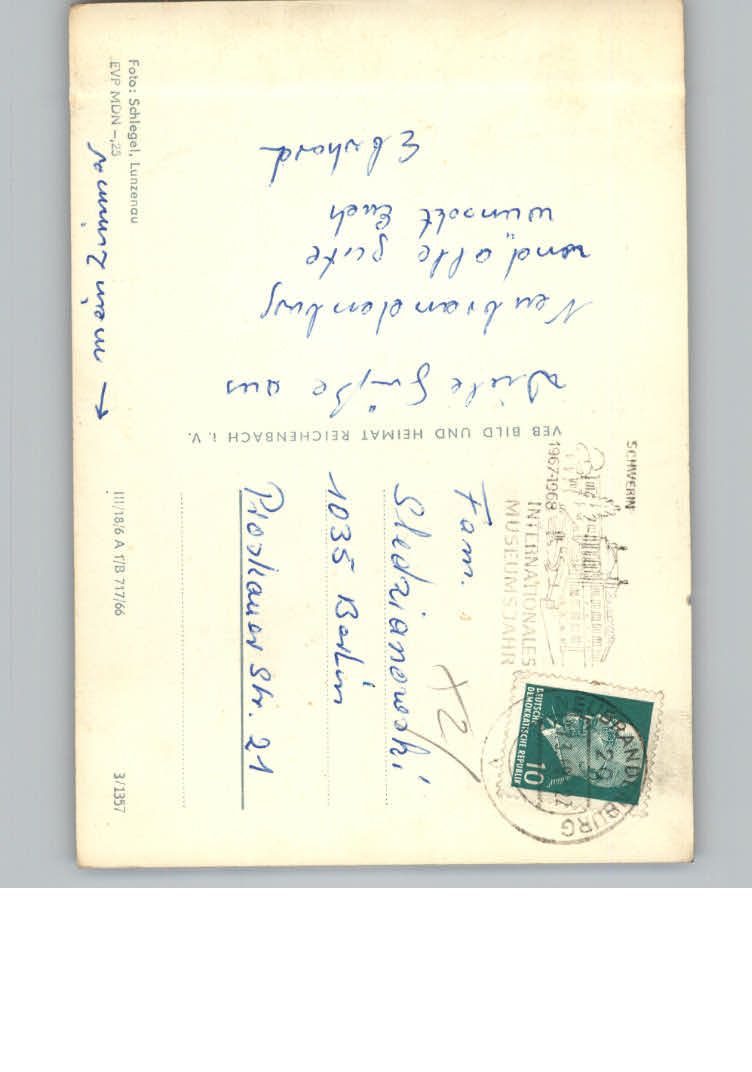 Viele Grüße aus
Neubrandenburg
und alle gute
wünscht Euch
Eberhard
mein Zimmer
Foto: Schlegel, Lunzenau
EVP MDN -,25
VEB BILD UND HEIMAT REICHENBACH i. V.
III/18/6 A 1/B 717/66
3/1357
SCHWERIN
1967-1968
INTERNATIONALES
MUSEUMSJAHR
DEUTSCHE
DEMOKRATISCHE REPUBLIK
10
NEUBRANDENBURG
Fam.
Sledzianowski
1035 Berlin
Proskauer Str. 21